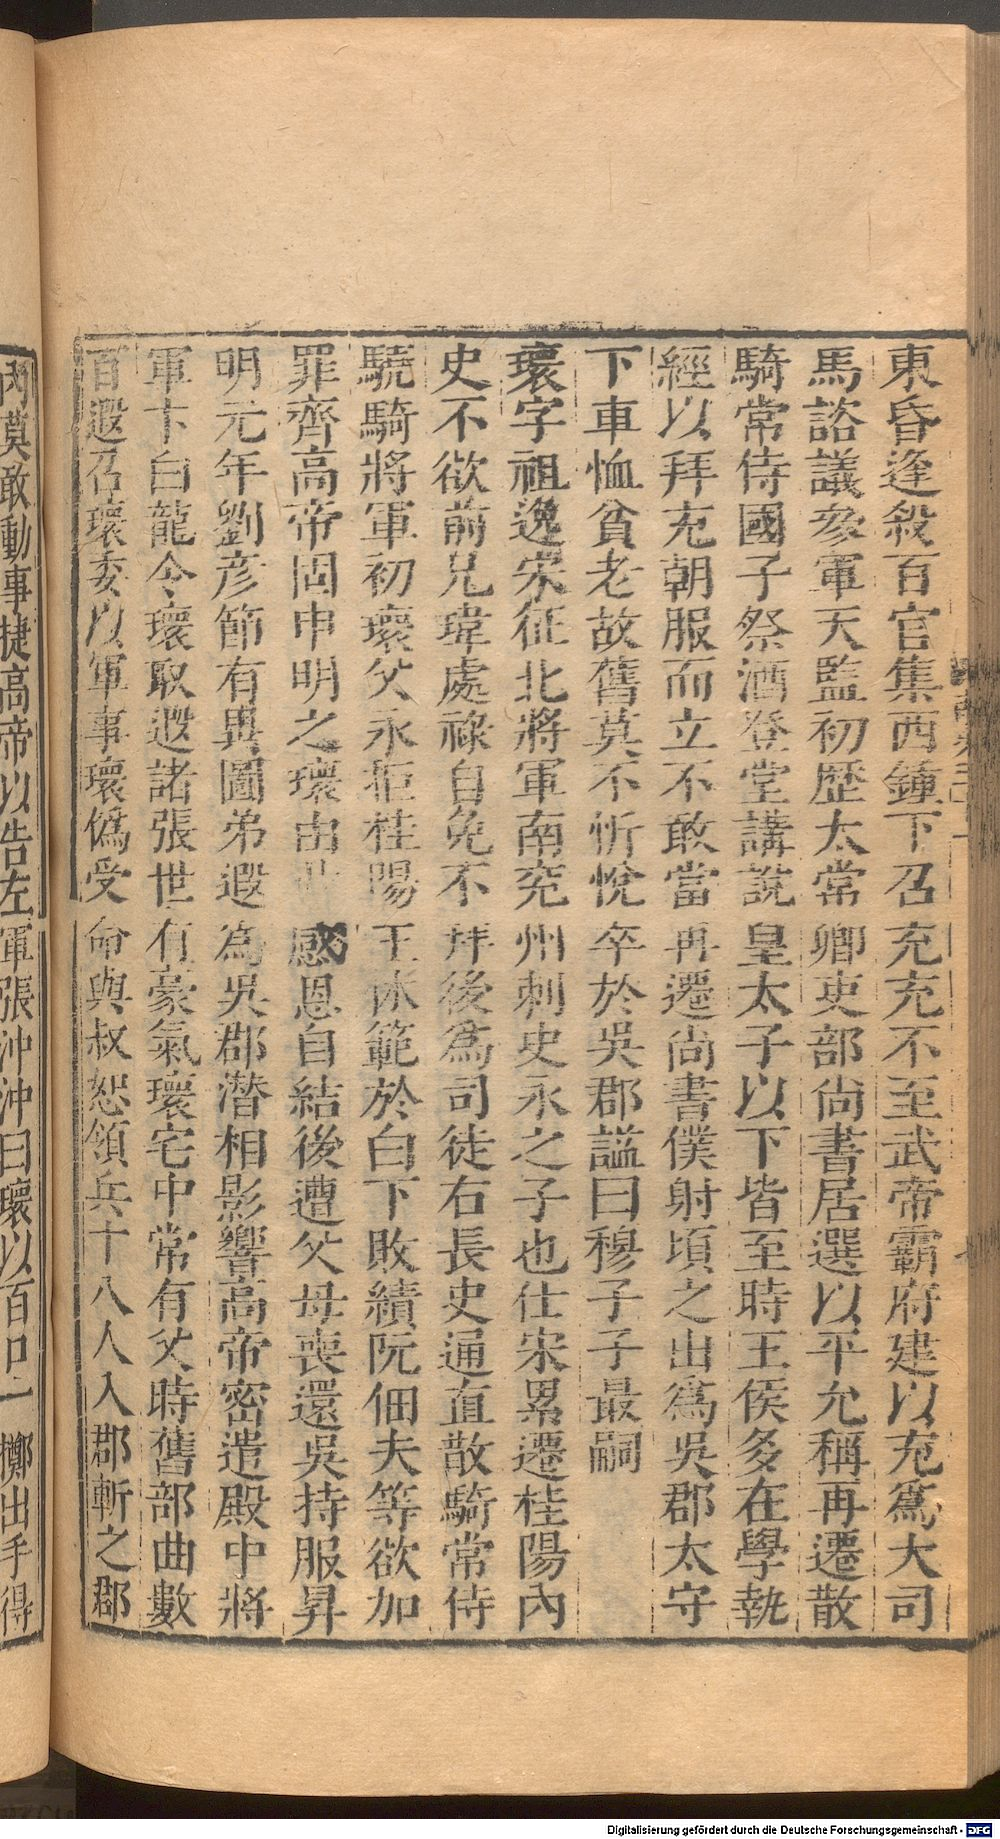 東昏逢殺百官集西鐘下召充充不至武帝霸府建以充爲大司
馬諮議叅軍天監初歷太常卿吏部尚書居選以平允稱再遷散
騎常侍國子祭酒登堂講說皇太子以下皆至時王侯多在學執
經以拜充朝服而立不敢當再遷尚書僕射頃之出爲吳郡太守
下車恤貧老故舊莫不忻悅卒於吳郡謚曰穆子子最嗣
瓌字祖逸宋征北將軍南兖州刺史永之子也仕宋累遷桂陽內
史不欲前兄瑋處祿自免不拜後爲司徒右長史通直散騎常侍
驍騎將軍初瓌父永拒桂陽王休範於白下敗績阮佃夫等欲加
罪齊高帝固申明之瓌由此感恩自結後遭父母喪還吳持服昇
明元年劉彦節有異圖弟遐爲吳郡潛相影響高帝密遣殿中將
軍卞白龍令瓌取遐諸張世有豪氣瓌宅中常有父時舊部曲數
百遐召瓌委以軍事瓌僞受命與叔恕領兵十八人入郡斬之郡
內莫敢動事捷高帝以告左軍張沖沖曰瓌以百口一擲出手得
Digitalisierung gefördert durch die Deutsche Forschungsgemeinschaft - DFG